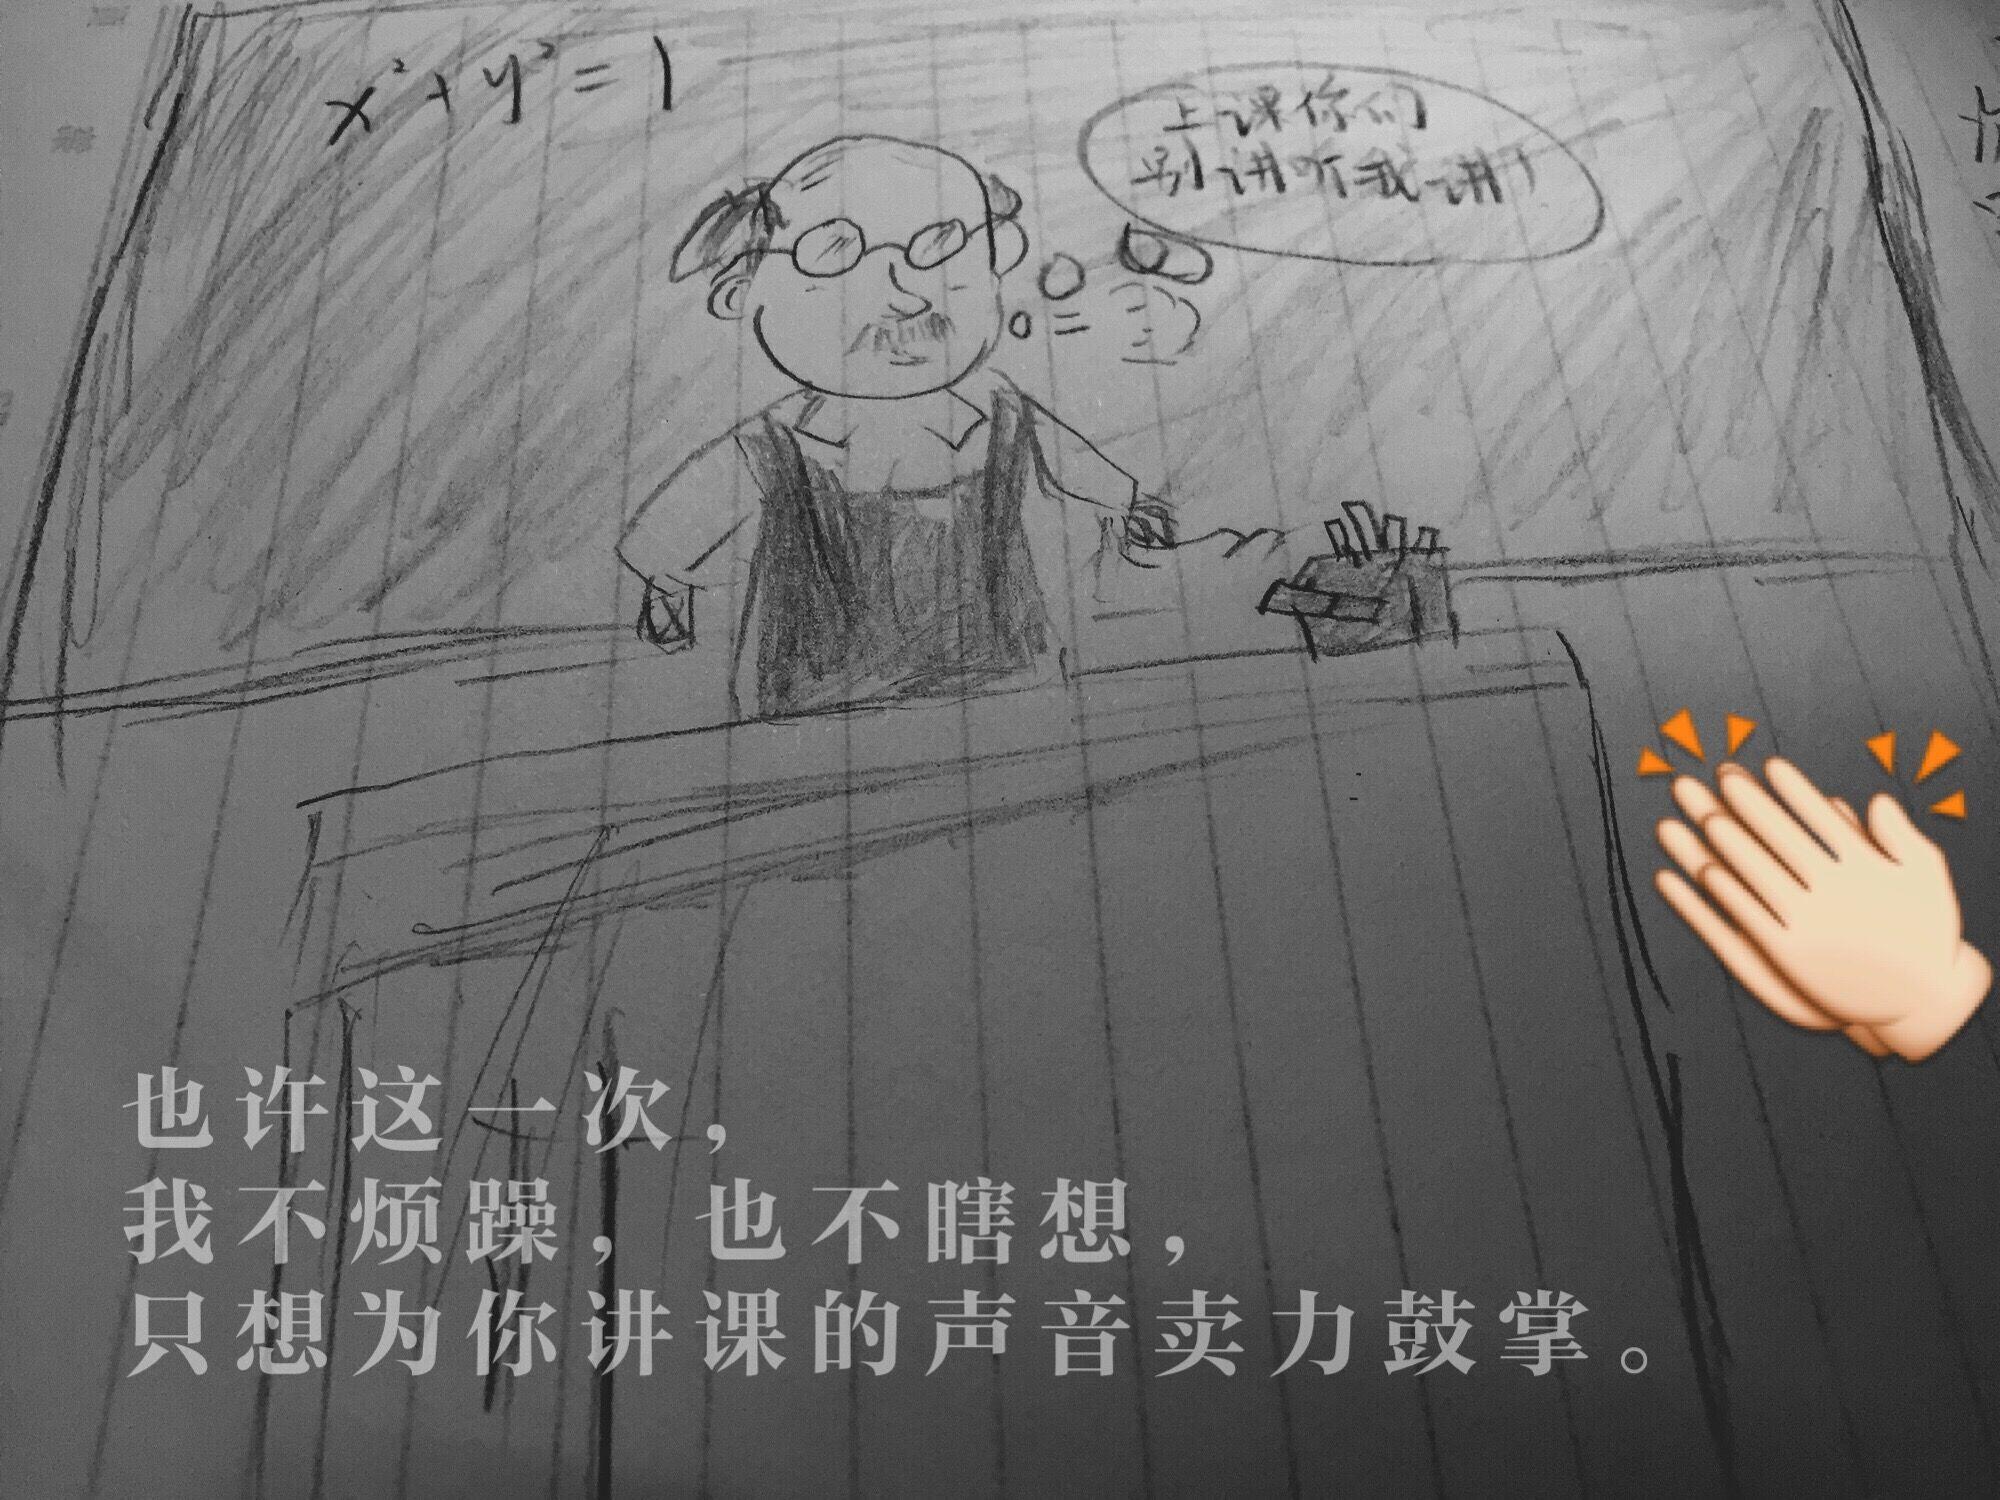 x²+y²=1
上课你们
别讲听我讲！
也许这一次，
我不烦躁，也不瞎想，
只想为你讲课的声音卖力鼓掌。